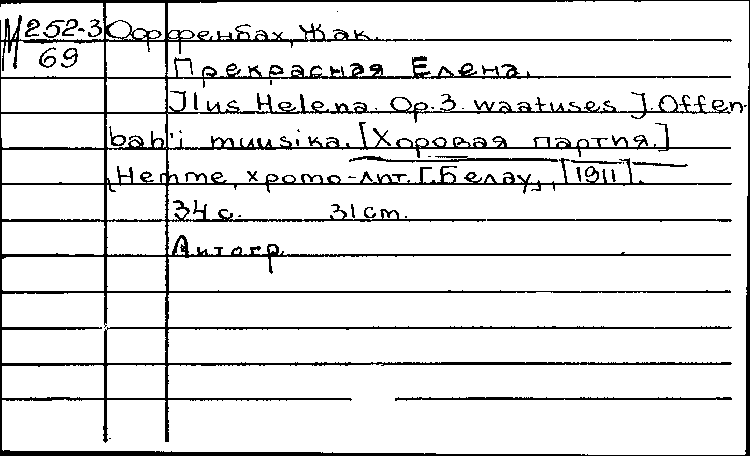 М 252-3 Оффенбах, Жак.
69
Прекрасная Елена.
Ilus Helena. Op. 3 waatuses J. Offen-
bah'i muusika. [Хоровая партия.]
хромо-лит. [1911].
34 с. 31 cm.
Литогр.